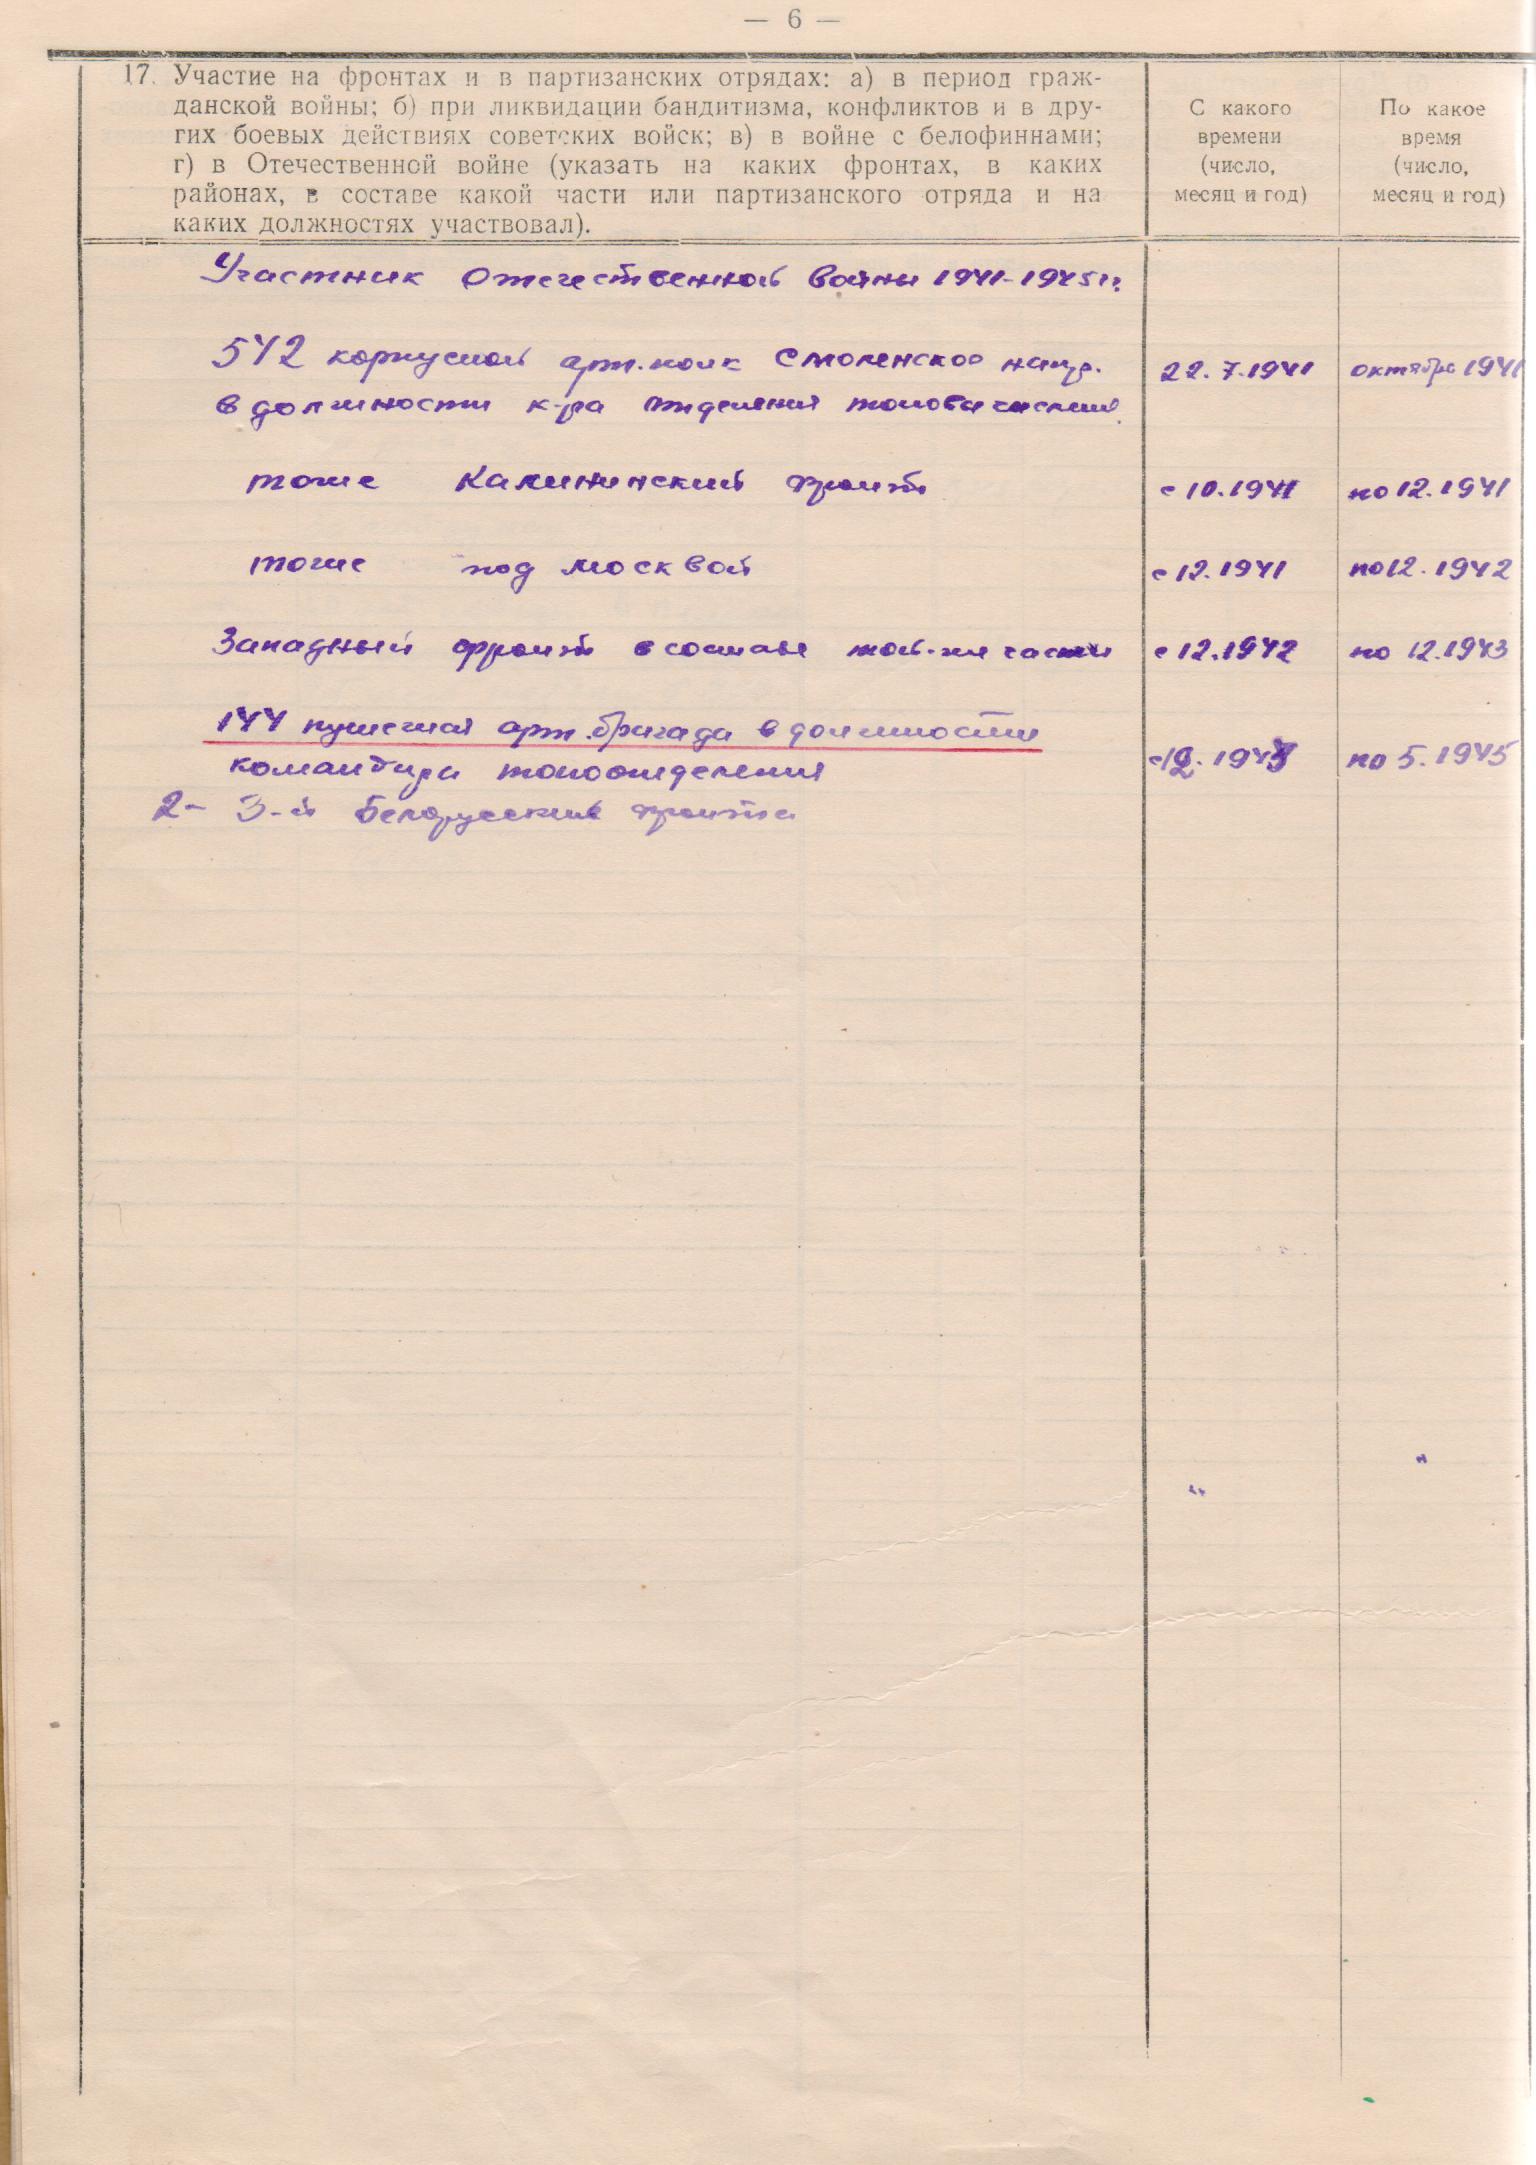 — 6 —
17. Участие на фронтах и в партизанских отрядах: а) в период граж-
данской войны; б) при ликвидации бандитизма, конфликтов и в дру-
гих боевых действиях советских войск; в) в войне с белофиннами;
г) в Отечественной войне (указать на каких фронтах, в каких
районах, в составе какой части или партизанского отряда и на
каких должностях участвовал).
С какого
времени
(число,
месяц и год)
По какое
время
(число,
месяц и год)
Участник Отечественной войны 1941-1945 гг.
542 корпусной арт. полк Смоленское напр. 22.7.1941 октябрь 1941
в должности к-ра отделения топовычислит.
тоже Калининский фронт с 10.1941 по 12.1941
тоже под Москвой с 12.1941 по 12.1942
Западный фронт в составе той-же части с 12.1942 по 12.1943
144 пушечная арт. бригада в должности
командира топоотделения с 12.1943 по 5.1945
2- 3-й Белорусский фронта